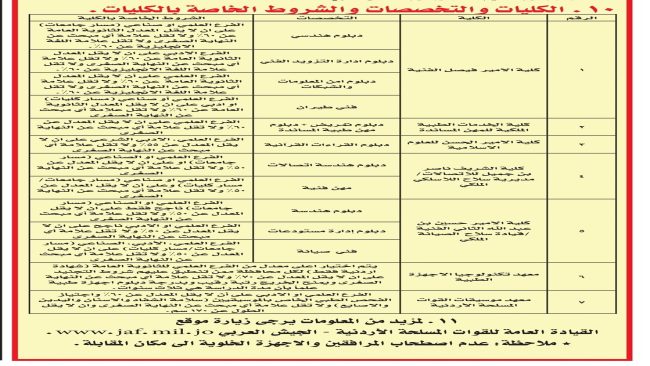 ١٠ - الكليات والتخصصات والشروط الخاصة بالكليات.
الرقم الكلية التخصصات الشروط الخاصة بالكلية
١ كلية الامير فيصل الفنية
دبلوم هندسي
الفرع العلمي او صناعي (مسار جامعات)
على ان لا يقل المعدل الثانوية العامة
عن ٦٠٪ ولا تقل علامة أي مبحث عن
النهاية الصغرى وان لا تقل علامة اللغة
الانجليزية عن ٦٠٪.
دبلوم ادارة التزويد الفني
الفرع الادبي على ان لا يقل المعدل
الثانوية العامة عن ٦٠٪ ولا تقل
علامة اللغة الانجليزية عن ٦٠٪.
دبلوم امن المعلومات
والشبكات
الفرع العلمي على ان لا يقل المعدل
الثانوية العامة عن ٦٠٪ ولا تقل
علامة اللغة الانجليزية عن ٦٠٪.
فني طيران
الفرع العلمي او صناعي (مسار كليات)
او ادبي على ان لا يقل المعدل الثانوية
العامة عن ٦٠٪ ولا تقل علامة أي مبحث
عن النهاية الصغرى
٢ كلية الخدمات الطبية
الملكية للمهن المساندة
دبلوم تمريض + دبلوم
مهن طبية المساندة
الفرع العلمي على ان لا يقل المعدل عن
٦٠٪ ولا تقل علامة أي مبحث عن النهاية
الصغرى
٣ كلية الامير الحسن للعلوم
الاسلامية
دبلوم القراءات القرآنية
الفرع العلمي، الادبي، الشرعي على ان لا
يقل المعدل عن ٥٥٪ ولا تقل علامة أي
مبحث عن النهاية الصغرى
٤ كلية الشريف ناصر
بن جميل للاتصالات/
مديرية سلاح اللاسلكي
الملكي
دبلوم هندسة اتصالات
الفرع العلمي او الصناعي (مسار
جامعات) او على ان لا يقل المعدل عن
٥٠٪ ولا تقل علامة أي مبحث عن النهاية
الصغرى
مهن فنية
الفرع العلمي او صناعي (مسار جامعات/
مسار كليات) وعلى ان لا يقل المعدل عن
٥٠٪ ولا تقل علامة أي مبحث عن النهاية
الصغرى
٥ كلية الامير حسين بن
عبد الله الثاني الفنية
/قيادة سلاح الصيانة
الملكي
دبلوم هندسة
الفرع العلمي او الصناعي (مسار
جامعات) ناجح فقط على ان لا يقل
المعدل عن ٥٠٪ ولا تقل علامة أي مبحث
عن النهاية الصغرى
دبلوم إدارة مستودعات
الفرع العلمي او الادبي ناجح على ان لا
يقل المعدل عن ٥٠٪ ولا تقل علامة أي
مبحث عن النهاية الصغرى
فني صيانة
الفرع العلمي، الادبي، الصناعي (مسار
جامعات/مسار كليات) على ان لا يقل
المعدل عن ٥٠٪ ولا تقل علامة أي مبحث
عن النهاية الصغرى
٦ معهد تكنولوجيا الاجهزة
الطبية
يتم اختيار اعلى معدل من الفرع العلمي للثانوية العامة (شهادة
اردنية فقط) لكل محافظة ممن تنطبق عليهم شروط التجنيد
على ان لا يقل المعدل عن ٧٠٪ ولا تقل علامة أي مبحث عن النهاية
الصغرى ويمنح الخريج رتبة رقيب وبدرجة دبلوم اجهزة طبية
علما بأن مدة الدراسة هي ثلاث سنوات.
٧ معهد موسيقات القوات
المسلحة الأردنية
الفرع العلمي او الادبي على ان لا يقل المعدل عن ٦٠٪ واجتياز
الفحص الطبي الخاص بالموسيقيين (سلامة الشفاه والاسنان واليدين
والاصابع) ولا تقل علامة أي مبحث عن النهاية الصغرى وان لا يقل
الطول عن ١٧٠ سم.
١١ - لمزيد من المعلومات يرجى زيارة موقع
القيادة العامة للقوات المسلحة الأردنية - الجيش العربي www.jaf.mil.jo.
* ملاحظة: عدم اصطحاب المرافقين والاجهزة الخلوية الى مكان المقابلة.